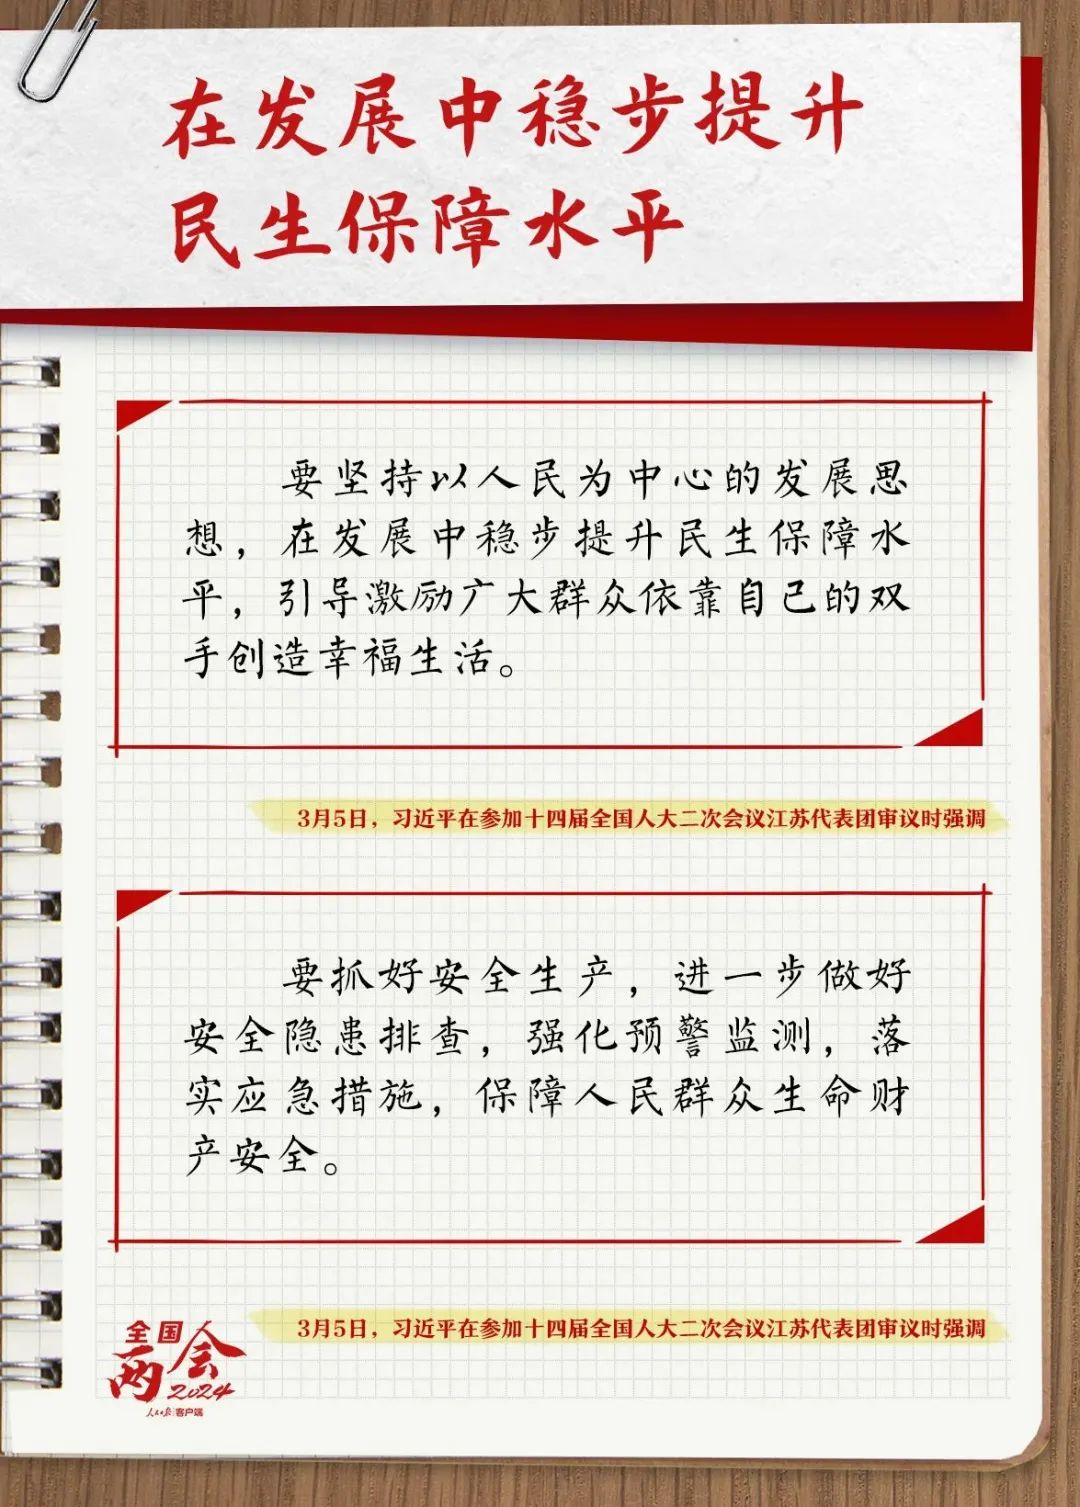 在发展中稳步提升
民生保障水平
要坚持以人民为中心的发展思
想，在发展中稳步提升民生保障水
平，引导激励广大群众依靠自己的双
手创造幸福生活。
3月5日，习近平在参加十四届全国人大二次会议江苏代表团审议时强调
要抓好安全生产，进一步做好
安全隐患排查，强化预警监测，落
实应急措施，保障人民群众生命财
产安全。
3月5日，习近平在参加十四届全国人大二次会议江苏代表团审议时强调
全国
两会
2024
人民日报 客户端